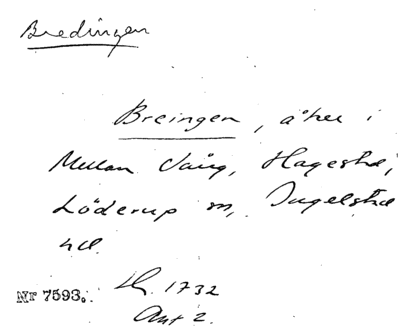 Bredingen
Breingen, åker i
Mellan Vång, Hagestad,
Löderup sn, Ingelstad
hd.
Nr 7593. LH. 1732
Akt 2.